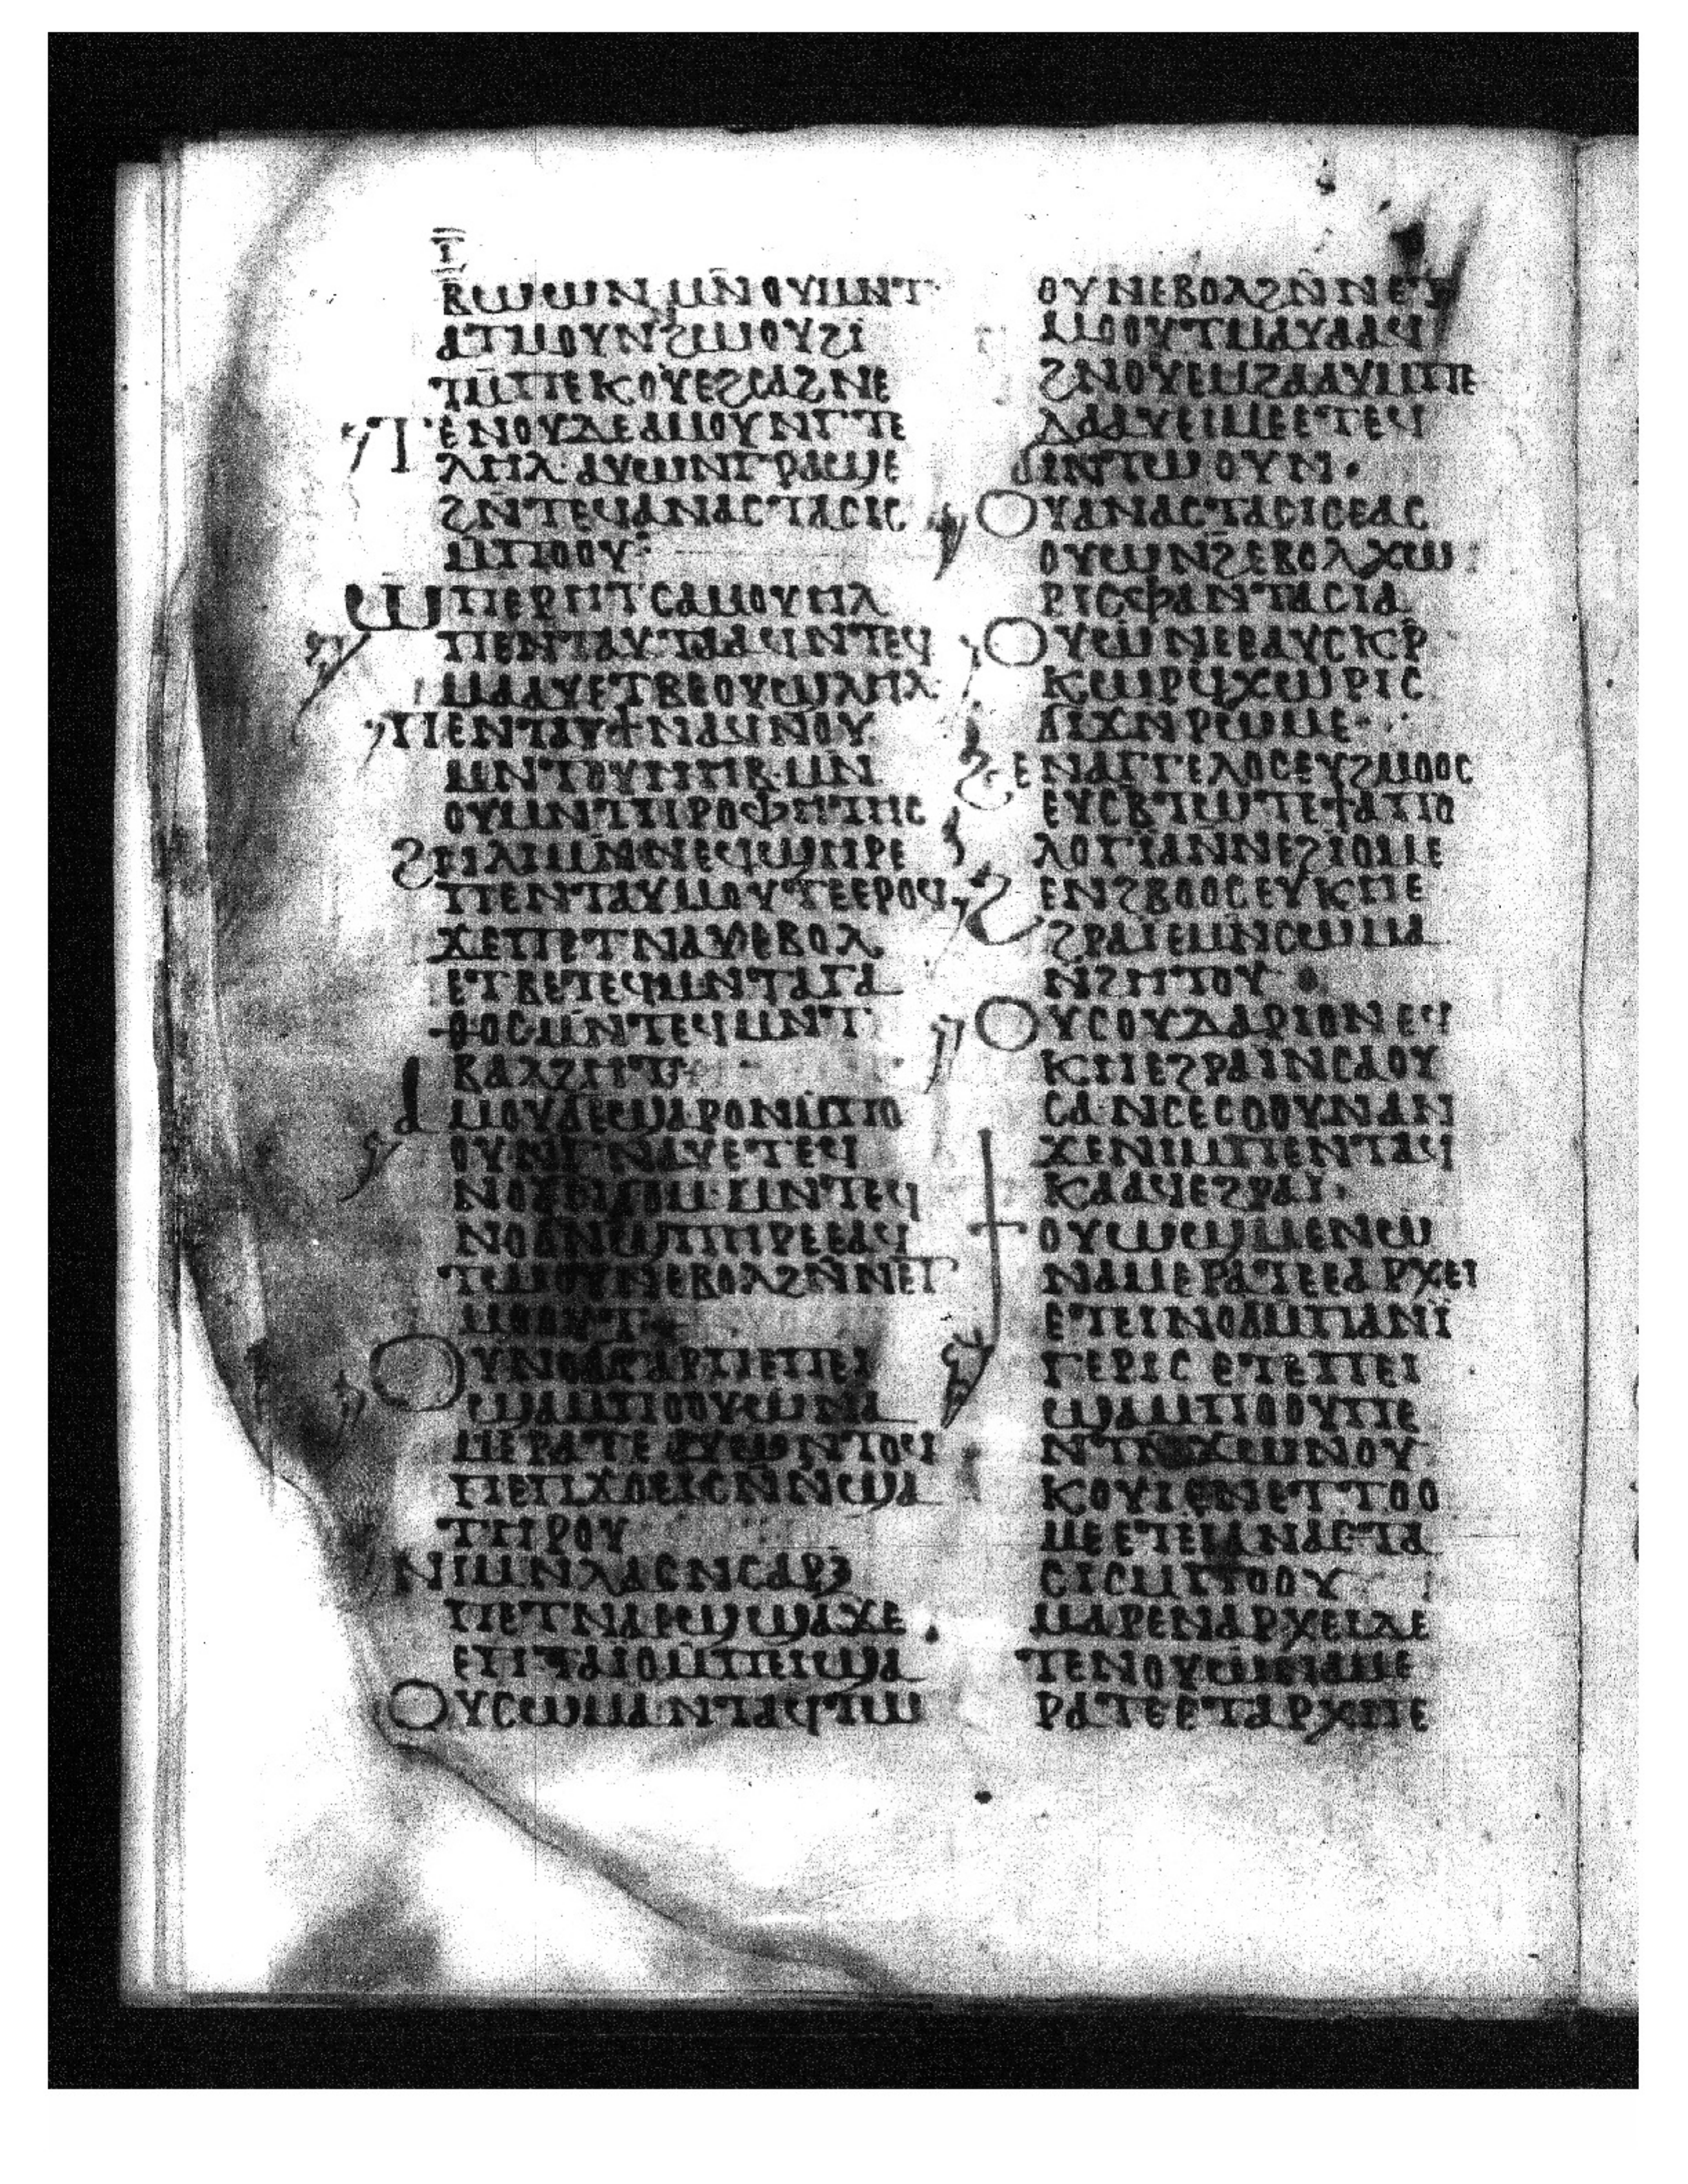 ⲓ̅
ⲃⲱⲱⲛ ⲙⲛ̄ⲟⲩⲙⲛⲧ
ⲁⲧⲙⲟⲩⲛϩⲙⲟⲩϩⲓ
ⲧⲙ̄ⲡⲉⲕⲟⲩⲉϩⲥⲁϩⲛⲉ
ⲧⲉⲛⲟⲩⲇⲉⲁⲙⲟⲩⲛⲅⲧⲉ
ⲗⲏⲗ·ⲁⲩⲱⲛⲅⲣⲁϣⲉ
ϩⲛ̄ⲧⲉϥⲁⲛⲁⲥⲧⲁⲥⲓⲥ
ⲙⲡⲟⲟⲩ
ⲱⲡⲉⲣⲏⲧⲥⲁⲙⲟⲩⲏⲗ
ⲡⲉⲛⲧⲁⲩⲧⲁⲁϥⲛⲧⲉϥ
ⲙⲁⲁⲩⲉⲧⲃⲉⲟⲩϣⲗⲏⲗ
ⲡⲉⲛⲧⲁⲩϯⲛⲁϥⲛⲟⲩ
ⲙⲛⲧⲟⲩⲏⲏⲃ·ⲙⲛ
ⲟⲩⲙⲛⲧⲡⲣⲟⲫⲏⲧⲏⲥ
ϩⲏⲗⲓⲙⲛⲛⲉϥϣⲏⲣⲉ
ⲡⲉⲛⲧⲁⲩⲙⲟⲩⲧⲉⲉⲣⲟϥ
ϫⲉⲡⲉⲧⲛⲁⲩⲉⲃⲟⲗ
ⲉⲧⲃⲉⲧⲉϥⲙⲛⲧⲁⲅⲁ
ⲑⲟⲥⲙⲛⲧⲉϥⲙⲛⲧ
ⲃⲁⲗϩⲏⲧ
ⲁⲙⲟⲩⲇⲉϣⲁⲣⲟⲛⲙⲡⲟ
ⲟⲩⲛⲅⲛⲁⲩⲉⲧⲉϥ
ⲛⲟϭⲛϭⲟⲙ·ⲙⲛⲧⲉϥ
ⲛⲟϭⲛϣⲡⲏⲣⲉⲉⲁϥ
ⲧⲱⲟⲩⲛⲉⲃⲟⲗϩⲛ̄ⲛⲉⲧ
ⲙⲟⲟⲩⲧ
ⲟⲩⲛⲟϭⲅⲁⲣⲡⲉⲡⲉⲓ
ϣⲁⲙⲡⲟⲟⲩⲱⲛⲁ
ⲙⲉⲣⲁⲧⲉ ⲁⲩⲱⲛⲧⲟϥ
ⲡⲉⲡϫⲟⲉⲓⲥⲛ̄ⲛϣⲁ
ⲧⲏⲣⲟⲩ
ⲛⲓⲙⲛⲗⲁⲥⲛⲥⲁⲣⲝ
ⲡⲉⲧⲛⲁⲉϣϣⲁϫⲉ
ⲉⲡⲧⲁⲓⲟⲙⲡⲉⲓϣⲁ
ⲟⲩⲥⲱⲙⲁⲛⲧⲁϥⲧⲱ
ⲟⲩⲛⲉⲃⲟⲗϩⲛ̄ⲛⲉⲧ
ⲙⲟⲟⲩⲧⲙⲁⲩⲁⲁϥ
ϩⲛⲟⲩⲉⲙϩⲁⲁⲩⲙⲡⲉ
ⲗⲁⲁⲩⲉⲓⲙⲉⲉⲧⲉϥ
ϭⲓⲛⲧⲱⲟⲩⲛ·
ⲟⲩⲁⲛⲁⲥⲧⲁⲥⲓⲥⲉⲁⲥ
ⲟⲩⲱⲛϩⲉⲃⲟⲗⲭⲱ
ⲣⲓⲥⲫⲁⲛⲧⲁⲥⲓⲁ
ⲟⲩⲱⲛⲉⲉⲁⲩⲥⲕⲣ
ⲕⲱⲣϥⲭⲱⲣⲓⲥ
ϭⲓϫⲛⲣⲱⲙⲉ·
ϩⲉⲛⲁⲅⲅⲉⲗⲟⲥⲉⲩϩⲙⲟⲟⲥ
ⲉⲩⲥⲃⲧⲱⲧⲉϯⲁⲡⲟ
ⲗⲟⲅⲓⲁⲛⲛⲉϩⲓⲟⲙⲉ
ϩⲉⲛϩⲃⲟⲟⲥⲉⲩⲕⲏⲉ
ϩⲣⲁⲓⲉⲙⲛⲥⲱⲙⲁ
ⲛϩⲏⲧⲟⲩ
ⲟⲩⲥⲟⲩⲇⲁⲣⲓⲟⲛⲉϥ
ⲕⲏⲉϩⲣⲁⲓⲛⲥⲁⲟⲩ
ⲥⲁ·ⲛⲥⲉⲥⲟⲟⲩⲛⲁⲛ
ϫⲉⲛⲓⲙⲡⲉⲛⲧⲁϥ
ⲕⲁⲁϥⲉϩⲣⲁⲓ·
ϯⲟⲩⲱϣⲙⲉⲛⲱ
ⲛⲁⲙⲉⲣⲁⲧⲉⲉⲁⲣⲭⲉⲓ
ⲉⲧⲉⲓⲛⲟϭⲙⲡⲁⲛⲏ
ⲅⲉⲣⲓⲥ ⲉⲧⲉⲡⲉⲓ
ϣⲁⲙⲡⲟⲟⲩⲡⲉ
ⲛⲧⲛϫⲱⲛⲟⲩ
ⲕⲟⲩⲓⲉⲛⲉⲧⲧⲟⲟ
ⲙⲉⲉⲧⲉⲓⲁⲛⲁⲥⲧⲁ
ⲥⲓⲥⲙⲡⲟⲟⲩ
ⲙⲁⲣⲉⲛⲁⲣⲭⲉⲓⲇⲉ
ⲧⲉⲛⲟⲩⲱⲛⲁⲙⲉ
ⲣⲁⲧⲉⲉⲧⲁⲣⲭⲏⲉ